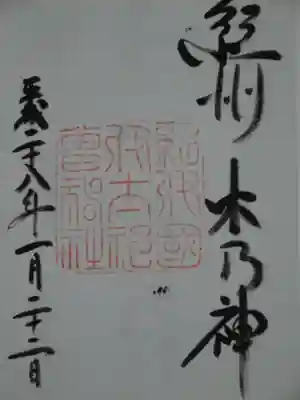 紀州 木乃神
紀伊國
伊太祁
曽神社
平成二十八年一月二十二日